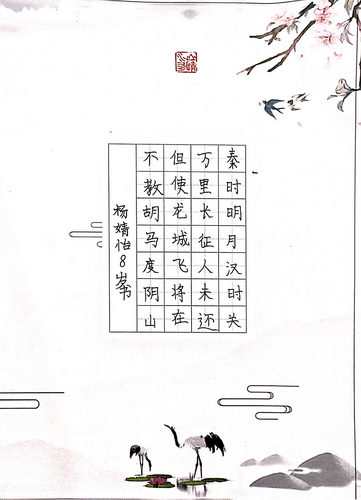 秦时明月汉时关
万里长征人未还
但使龙城飞将在
不教胡马度阴山
杨婧怡8岁书